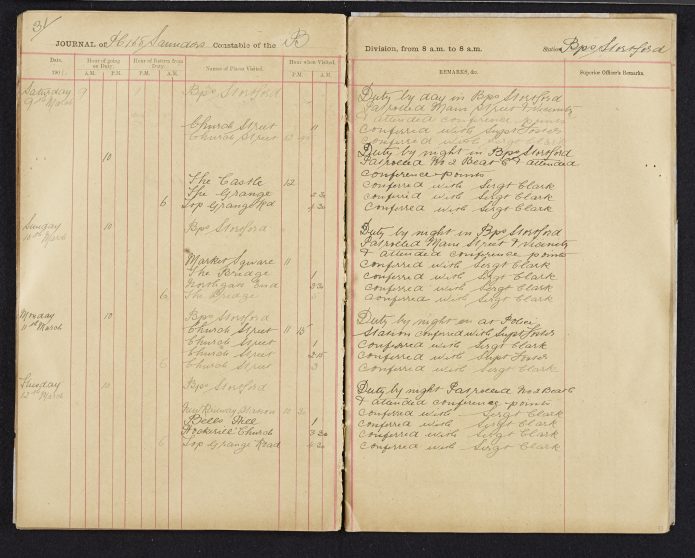 31
JOURNAL of Saunders Constable of the B Division, from 8 a.m. to 8 a.m. Station Bps Stortford
Date, 190 Hour of going on Duty. A.M. P.M. Hour of Return from Duty. A.M. P.M. A.M. Names of Places Visited. Hour when Visited. P.M. A.M. REMARKS, &c. Superior Officer's Remarks.
Saturday 9 1 Bps Stortford Duty by day in Bps Stortford
9th March Patrolled Main Street & vicinity
& attended conference points
Church Street 11 Conferred with Supt Foster
Church Street Conferred with Sergt Clark
10 Duty by night in Bps Stortford
Patrolled No 2 Beat & attended
conference points
The Castle 12 Conferred with Sergt Clark
The Grange 2 30 Conferred with Sergt Clark
6 Top Grange Rd 4 30 Conferred with Sergt Clark
Sunday 10 Bps Stortford Duty by night in Bps Stortford
10th March Patrolled Main Street & vicinity
& attended conference points
Market Square 11 Conferred with Sergt Clark
The Bridge 1 Conferred with Sergt Clark
Northgate End 3 30 Conferred with Sergt Clark
6 The Bridge 5 Conferred with Sergt Clark
Monday 10 Bps Stortford Duty by night on at Police
11th March Church Street 11 15 Station conferred with Supt Foster
Church Street 1 Conferred with Sergt Clark
Church Street 2 15 Conferred with Supt Foster
6 Church Street 3 Conferred with Sergt Clark
Tuesday 10 Bps Stortford Duty by night Patrolled No 2 Beat
12th March & attended conference points
Railway Station 10 30 Conferred with Sergt Clark
Bells Hill 1 Conferred with Sergt Clark
Church 3 30 Conferred with Sergt Clark
6 Top Grange Road 4 30 Conferred with Sergt Clark